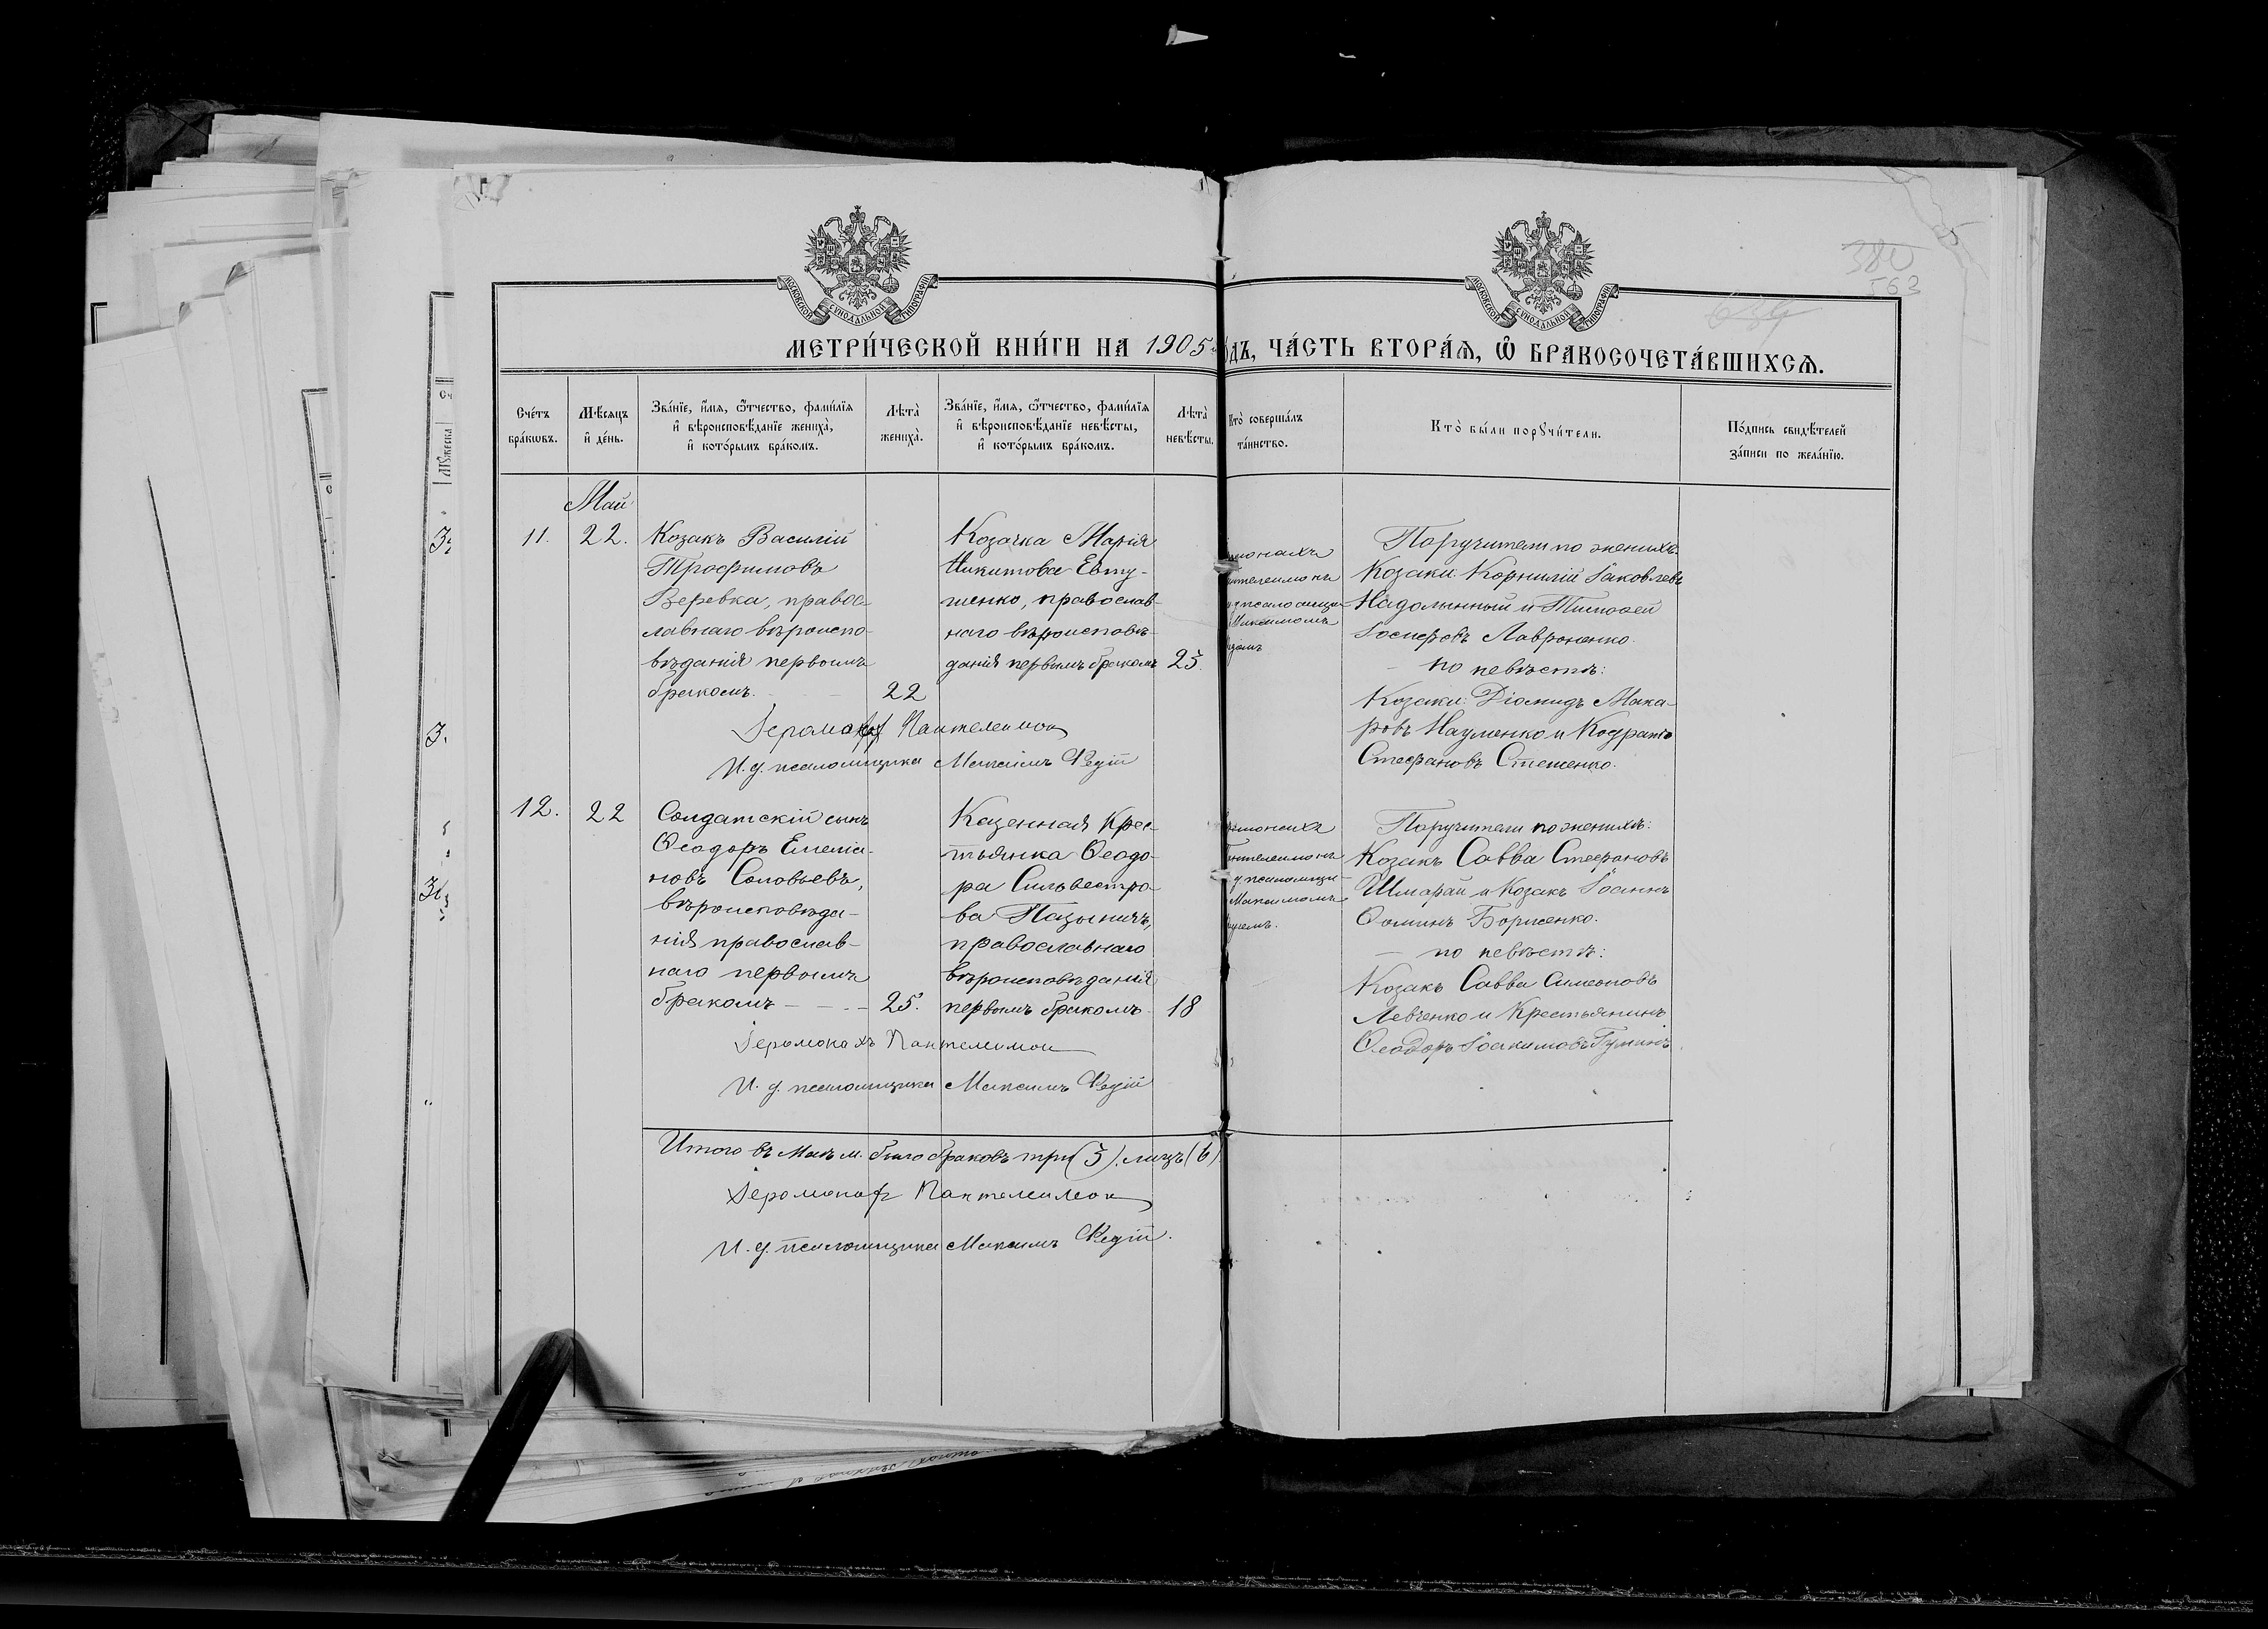 МОСКОВСКОЙ СѴНОДАЛЬНОЙ ТИПОГРАФІИ
МОСКОВСКОЙ СѴНОДАЛЬНОЙ ТИПОГРАФІИ
380
563
634
МЕТРИ́ЧЕСКОЙ КНИ́ГИ НА 1905 ДЪ, ЧА́СТЬ ВТОРА́Ѧ, Ѽ БРАКОСОЧЕТА́ВШИХСѦ.
Сче́тъ
бра́кѡвъ.
Мѣ́сяцъ
и҆ де́нь.
Зва́нїе, и҆́мя, ѻ҆́тчество, фами́лїя
и҆ вѣроисповѣ́данїе жениха̀,
и҆ кото́рымъ бра́комъ.
Лѣта̀
жениха̀.
Зва́нїе, и҆́мя, ѻ҆́тчество, фами́лїя
и҆ вѣроисповѣ́данїе невѣ́сты,
и҆ кото́рымъ бра́комъ.
Лѣта̀
невѣ́сты.
Кто̀ соверша́лъ
та́инство.
Кто̀ бы́ли порꙋчи́тели.
По́дпись свидѣ́телей
за́писи по жела́нїю.
Май
11.
22.
Козакъ Василій
Трофимовъ
Веревка, правос-
лавнаго вѣроиспо-
вѣданія первымъ
бракомъ.
22
Козачка Марія
Никитова Евту-
шенко, православ-
наго вѣроисповѣ-
данія первымъ бракомъ
23.
монахъ
телеимонъ
псаломщи-
Максимомъ
Поручители по женихѣ:
Козаки: Корнилій Іаковлевъ
Надолинный и Тимофей
Іосифовъ Лавроненко.
— по невѣстѣ:
Козаки: Діомидъ Мака-
ровъ Науменко и Кодратъ
Стефановъ Стешенко.
Іеромонахъ Пантелеимон
И. д. псаломщика Максимъ Редій
12.
22
Солдатскій сынъ
Ѳеодоръ Емелiа-
новъ Соловьевъ,
вѣроисповѣда-
нія православ-
наго первымъ
бракомъ — — . —
25.
Казенная крес-
тьянка Ѳеодо-
ра Сильвестро-
ва Пазыничъ,
православнаго
вѣроисповѣданія
первымъ бракомъ
18
монахъ
Пантелеимонъ
псаломщи-
Максимомъ
Поручители по женихѣ:
Козакъ Савва Стефановъ
Шмарай и Козакъ Іоаннъ
Ѳоминъ Борисенко.
— по невѣстѣ:
Козакъ Савва Симеоновъ
Левченко и Крестьянинъ
Ѳеодоръ Іоакимовъ Гуминъ.
Іеромонахъ Пантелеимон
И. д. псаломщика Максимъ Редій
Итого въ Маѣ м. было браковъ три (3). лицъ (6)
Іеромонахъ Пантелеимон
И. д. псаломщика Максимъ Редій.